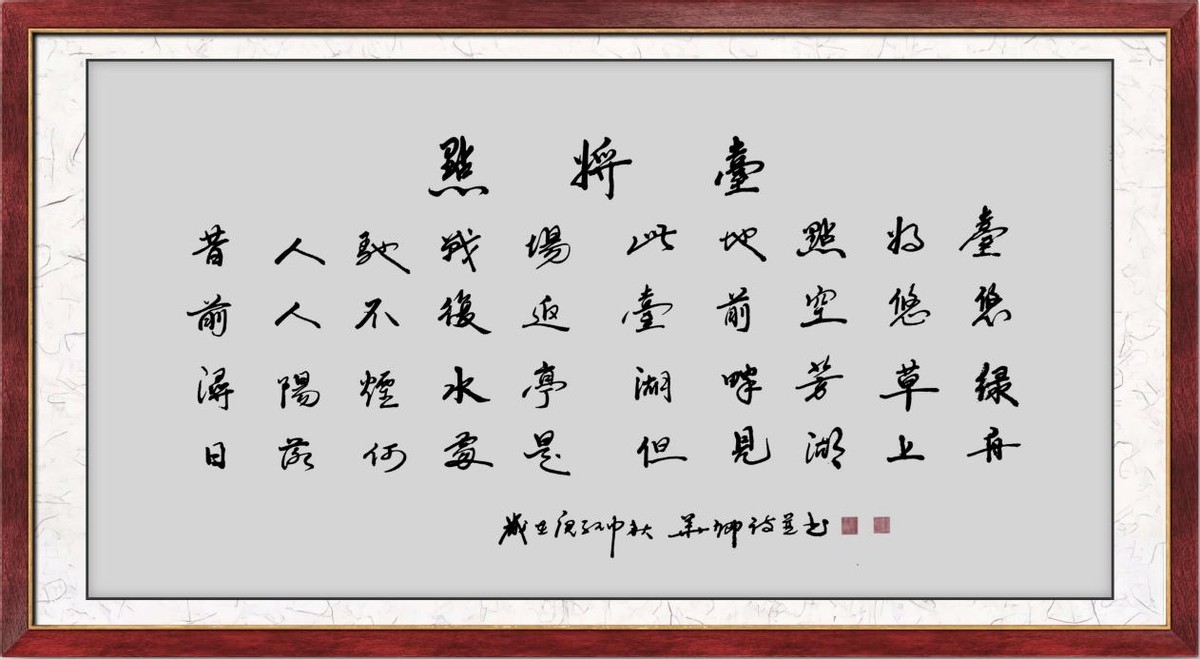 點將臺
昔人馳戰場 此地點將臺
前人不復返 臺前空悠悠
潯陽煙水亭 湖畔芳草綠
日落何處是 但見湖上舟
歲在庚子仲秋 華卿詩並書